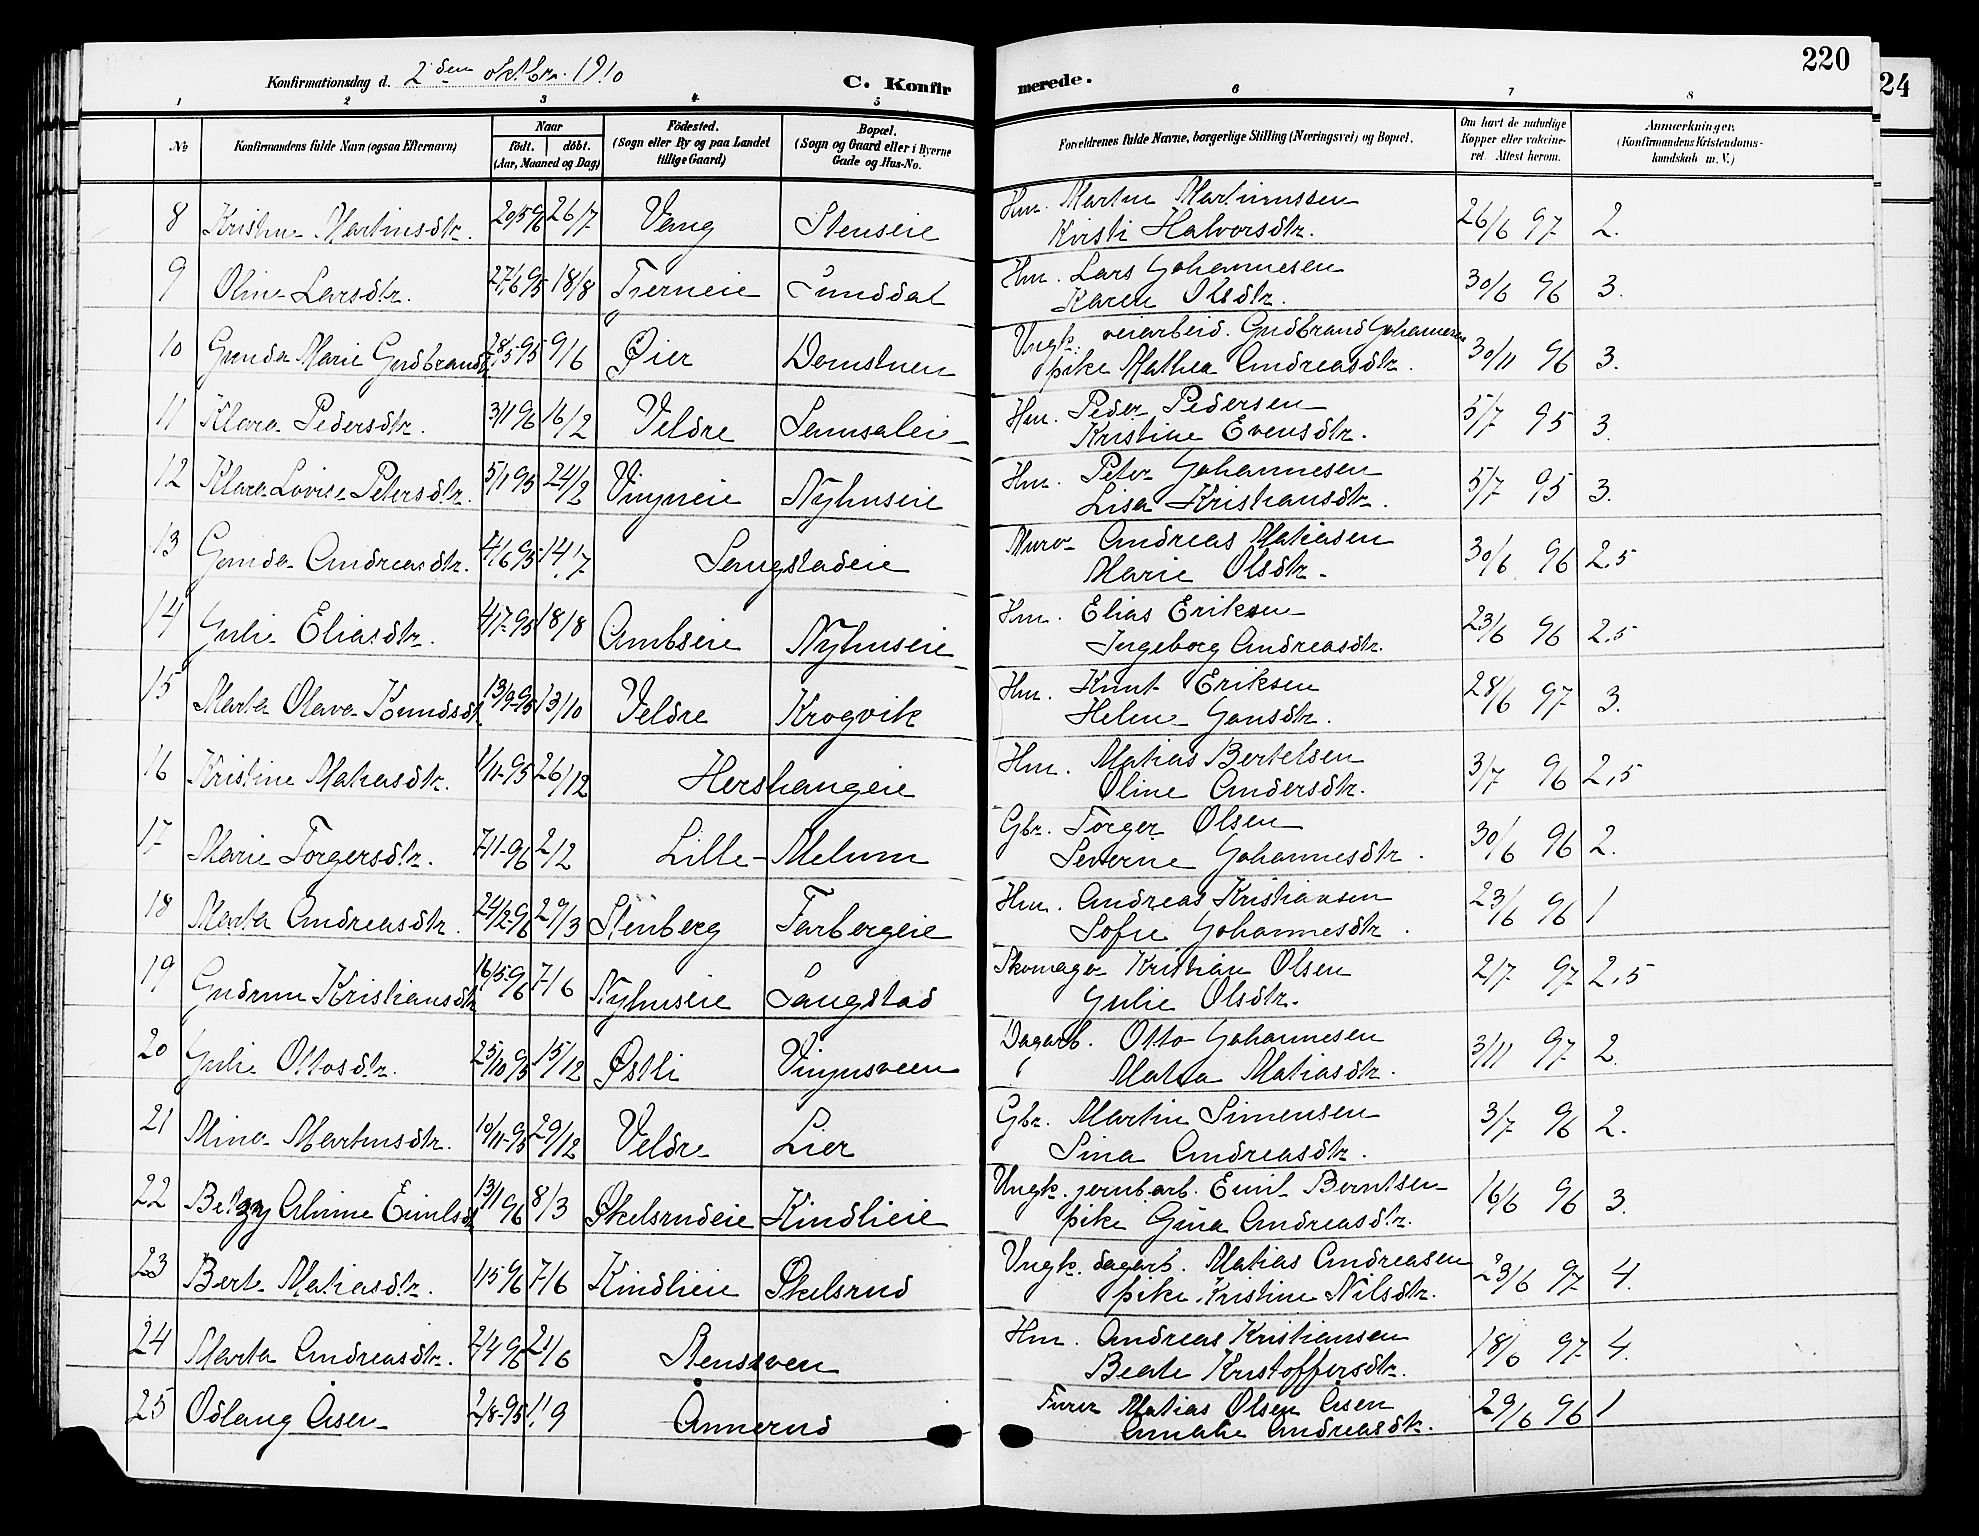 220
24
Konfirmationsdag d. 2den oktbr. 1910
C. Konfirmerede.
1 2 3 4 5 6 7 8
No Konfirmandens fulde Navn (ogsaa Efternavn) Naar født. døbt. (Aar, Maaned og Dag) Fødested. (Sogn eller By og paa Landet tillige Gaard) Bopæl. (Sogn og Gaard eller i Byerne Gade og Hus-No. Forældrenes fulde Navne, borgerlige Stilling (Næringsvei) og Bopæl. Om havt de naturlige Kopper eller vakcineret. Attest herom. Anmærkninger. (Konfirmandens Kristendomskundskab m. V.)
8 Kristine Martinsdtr. 20/5 96 26/7 Vang Stenseie Hm. Martin Martinussen 26/6 97 2.
Kirsti Halvorsdtr.
9 Oline Larsdtr. 27/6 95 18/8 Tjerneie Sunddal Hm. Lars Johannesen 30/6 96 3.
Karen Olsdtr.
10 Gunda Marie Gudbrandsd. 28/5-95 9/6 Øier Domstuen Ungk. veiarbeid. Gudbrand Johannesen 30/11 96 3.
pike Mathea Andreasdtr.
11 Klara Pedersdtr. 3/1 96 16/2 Veldre Hm. Peder Pedersen 5/7 95 3.
Kristine Evensdtr.
12 Klara Lovise Petersdtr. 5/1 95 24/2 Nyhuseie Hm. Peter Johannesen 5/7 95 3.
Lisa Kristiansdtr.
13 Gunda Andreasdtr. 4/6 95 14/7 Sangstadeie Murer Andreas Matiasen 30/6 96 2,5
Marie Olsdtr.
14 Julie Eliasdtr. 4/7-95 18/8 Ambseie Nyhuseie Hm. Elias Eriksen 23/6 96 2,5
Ingeborg Andreasdtr.
15 Marta Olava Knudsdtr 13/9-95 13/10 Veldre Krogvik Hm. Knut Eriksen 28/6 97 3.
Helene Jonsdtr.
16 Kristine Matiasdtr. 1/11-95 26/12 Hershaugeie Hm. Matias Bertelsen 3/7 96 2,5
Oline Andersdtr.
17 Marie Torgersdtr. 7/1-96 2/2 Lille-Melum Gbr. Torger Olsen 30/6 96 2.
Severine Johannesdtr.
18 Marta Andreasdtr. 24/2-96 29/3 Stenberg Farbergeie Hm. Andreas Kristiansen 23/6 96 1
Sofie Johannesdtr.
19 Gudrun Kristiansdtr 16/5-96 7/6 Nyhuseie Sangstad Skomager Kristian Olsen 2/7 97 2,5
Julie Olsdtr.
20 Julie Ottosdtr. 25/10 95 15/12 Østli Dagarb. Otto Johannesen 3/11 97 2.
Matea Matiasdtr.
21 Mina Martinsdtr. 10/11-95 29/12 Veldre Lier Gbr. Martin Simensen 3/7 96 2.
Sina Andreasdtr.
22 Betzy Alvine Emilsd. 13/1 96 8/3 Skelsrudeie Kindlieie Ungk. jernb.arb. Emil Berntsen 16/6 96 3.
pike Gina Andreasdtr.
23 Berte Matiasdtr. 1/5 96 7/6 Kindlieie Skelsrud Ungk. dagarb. Matias Andreasen 23/6 97 4.
pike Kristine Nilsdtr.
24 Marta Andreasdtr. 7/4 96 21/6 Stensveen Hm. Andreas Kristiansen 18/6 97 4.
Beate Kristoffersdtr.
25 Odlaug Åsen 2/8-95 1/9 Ånnerud Furer Matias Olsen Åsen 29/6 96 1
Amalie Andreasdtr.